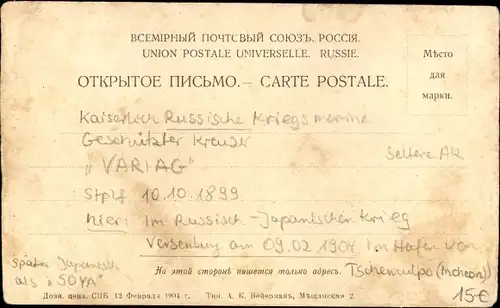 ВСЕМІРНЫЙ ПОЧТОВЫЙ СОЮЗЪ. РОССІЯ.
UNION POSTALE UNIVERSELLE. RUSSIE.
ОТКРЫТОЕ ПИСЬМО.— CARTE POSTALE.
Мѣсто
для
марки.
Kaiserlich Russische Kriegsmarine
Geschützter Kreuzer
„VARIAG"
Seltene AK
Stplf 10.10.1899
hier: Im Russisch-Japanischen Krieg
Versenkung am 09.02.1904 Im Hafen von
Tschemulpo (Incheon)
Später Japanisch
als „SOYA"
На этой сторонѣ пишется только адресъ.
Дозв. ценз. СПБ 12 Февраля 1904 г. Тип. А. К. Вейерманъ, Мѣщанская 2.
15€